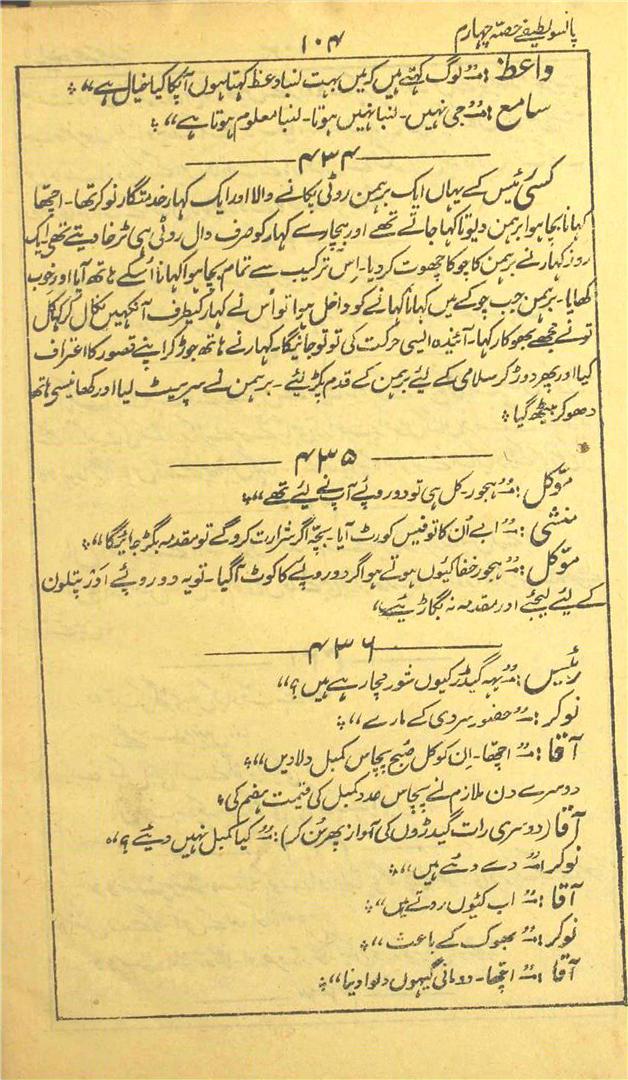 پانسو لطیفے حصہ چہارم
۱۰۴
واعظ: "لوگ کہتے ہیں کہ میں بہت لنبا وعظ کہتا ہوں آپکا کیا خیال ہے"
سامع: "جی نہیں۔ لنبا نہیں ہوتا۔ لنبا معلوم ہوتا ہے"
۴۳۴
کسی رئیس کے یہاں ایک برہمن روٹی پکانے والا اور ایک کہار خدمتگار نوکر تھا۔ اچھا
کہانا بچا ہوا برہمن دیوتا کہا جاتے تھے اور بیچارے کہار کو صرف دال روٹی ہی ٹرخا دیتے تھے ایک
روز کہار نے برہمن کا چوکا چھوت کر دیا۔ اس ترکیب سے تمام بچا ہوا کہانا اسکے ہاتھ آیا اور خوب
کھایا۔ برہمن جب چوکے میں کہانا کہانے کو داخل ہوا تو اُس نے کہار کیطرف آنکھیں نکال کر کہا کل
تونے مجھے بھوکا رکہا۔ آئندہ ایسی حرکت کی تو تو جانیگا۔ کہار نے ہاتھ جوڑ کر اپنے قصور کا اعتراف
کیا اور پھر دوڑ کر سلامی کے لیئے برہمن کے قدم پکڑ لیئے۔ برہمن نے سر پیٹ لیا اور کھانیسی ہاتھ
دھوکر بیٹھ گیا
۴۳۵
موکل: "ہجور۔ کل ہی تو دو روپئے آپ نے لیئے تھے"
منشی: "ابے اُن کا تو فیس کورٹ آیا۔ بچہ اگر شرارت کروگے تو مقدمہ بگڑ جائیگا"
موکل: "ہجور خفا کیوں ہوتے ہو اگر دو روپئے کا کوٹ آگیا۔ تو یہ دو روپئے اور پتلون
کے لیئے لیجئے اور مقدمہ نہ بگاڑیئے"
۴۳۶
رئیس: "یہہ گیدڑ کیوں شور مچا رہے ہیں؟"
نوکر: "حضور سردی کے مارے"
آقا: "اچھا۔ اِن کو کل صبح پچاس کمبل دلا دیں"
دوسرے دن ملازم نے پچاس عدد کمبل کی قیمت ہضم کی
آقا (دوسری رات گیدڑوں کی آواز پھر سُن کر): "کیا کمبل نہیں دیئے؟"
نوکر: "دے دئے ہیں"
آقا: "اب کیوں روتے ہیں"
نوکر: "بھوک کے باعث"
آقا: "اچھا۔ دو مانی گیہوں دلوا دینا"